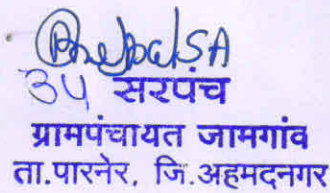 सरपंच
ग्रामपंचायत जामगांव
ता.पारनेर, जि.अहमदनगर